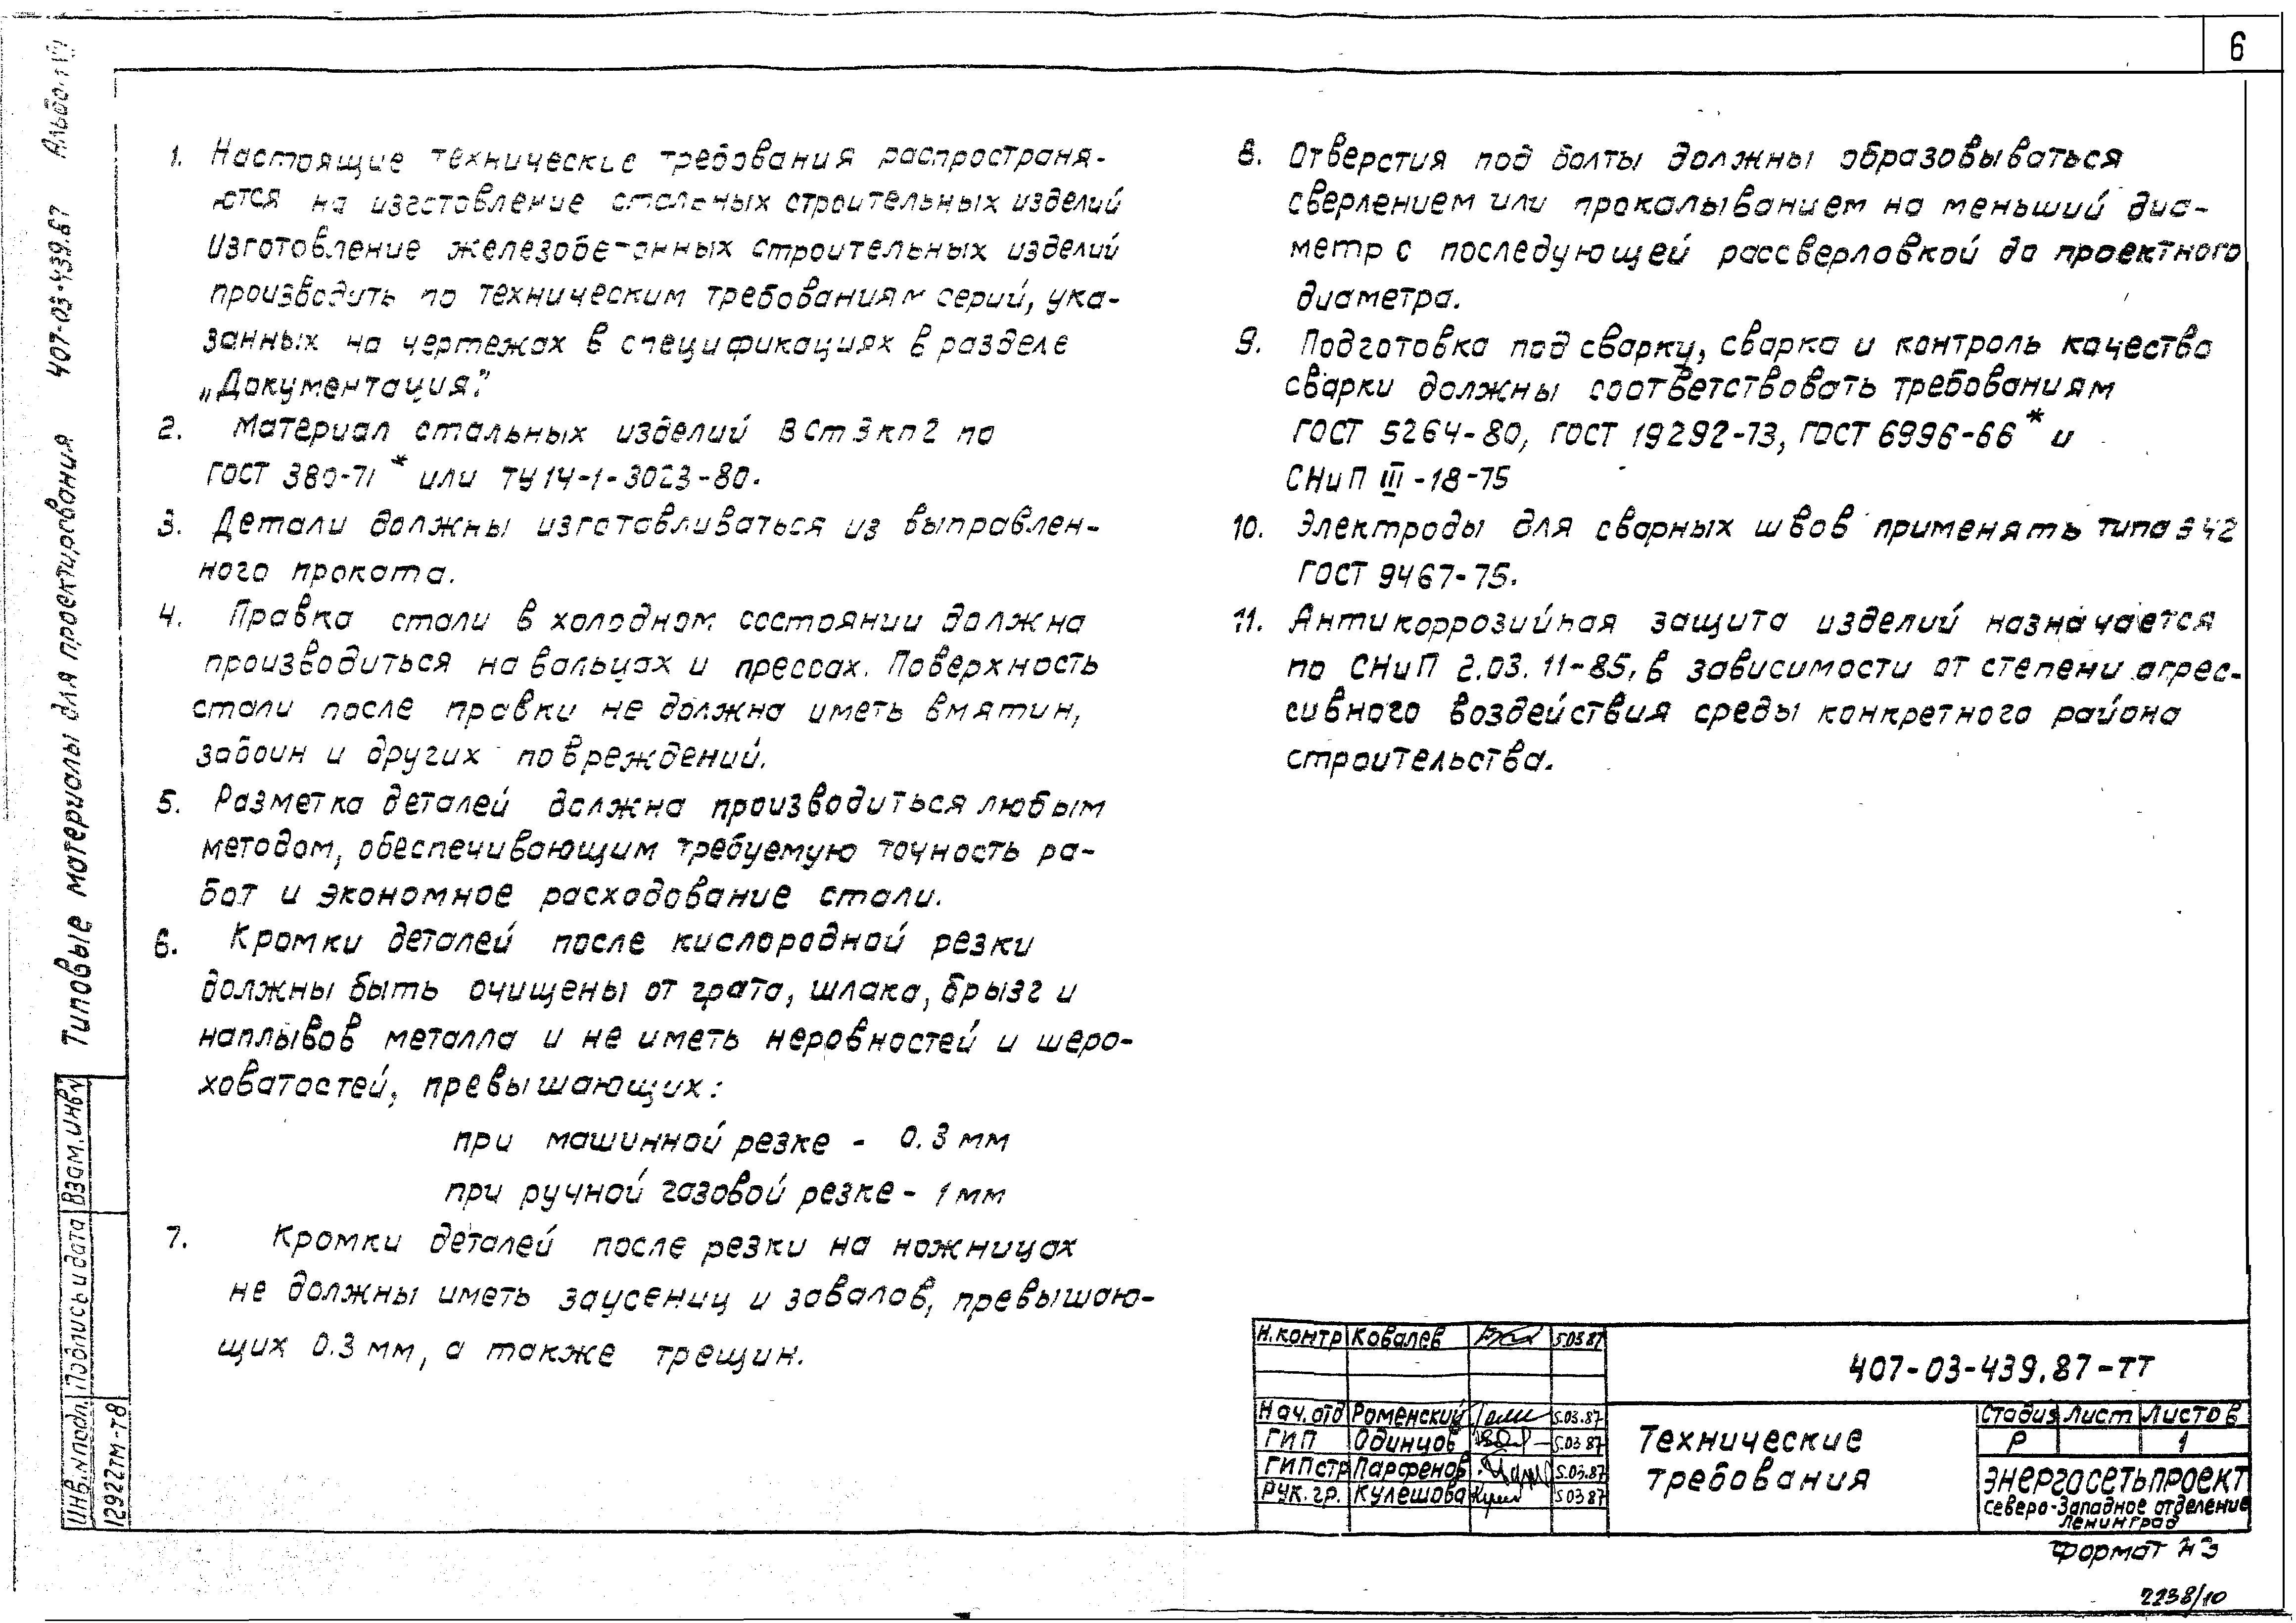 6
Типовые материалы для проектирования 407-03-439.87 Альбом
1. Настоящие технические требования распространя-
ются на изготовление стальных строительных изделий
Изготовление железобетонных строительных изделий
производить по техническим требованиям серий, ука-
занных на чертежах в спецификациях в разделе
„Документация."
2. Материал стальных изделий ВСт3кп2 по
ГОСТ 380-71* или ТУ14-1-3023-80.
3. Детали должны изготавливаться из выправлен-
ного проката.
4. Правка стали в холодном состоянии должна
производиться на вальцах и прессах. Поверхность
стали после правки не должна иметь вмятин,
забоин и других повреждений.
5. Разметка деталей должна производиться любым
методом, обеспечивающим требуемую точность ра-
бот и экономное расходование стали.
6. Кромки деталей после кислородной резки
должны быть очищены от грата, шлака, брызг и
наплывов металла и не иметь неровностей и шеро-
ховатостей, превышающих:
при машинной резке - 0.3 мм
при ручной газовой резке - 1 мм
7. Кромки деталей после резки на ножницах
не должны иметь заусениц и завалов, превышаю-
щих 0.3 мм, а также трещин.
8. Отверстия под болты должны образовываться
сверлением или прокалыванием на меньший диа-
метр с последующей рассверловкой до проектного
диаметра.
9. Подготовка под сварку, сварка и контроль качества
сварки должны соответствовать требованиям
ГОСТ 5264-80, ГОСТ 19292-73, ГОСТ 6996-66* и
СНиП III-18-75
10. Электроды для сварных швов применять типа Э42
ГОСТ 9467-75.
11. Антикоррозийная защита изделий назначается
по СНиП 2.03.11-85, в зависимости от степени агрес-
сивного воздействия среды конкретного района
строительства.
Инв.№подл. Подпись и дата Взам.инв.№
12922тм-т8
Н.контр Ковалев 5.03.87
Нач.отд Роменский 5.03.87
ГИП Одинцов 5.03.87
ГИПстр Парфенов 5.03.87
Рук.гр. Кулешова 5.03.87
407-03-439.87-ТТ
Технические
требования
Стадия Лист Листов
Р 1
ЭНЕРГОСЕТЬПРОЕКТ
Северо-Западное отделение
Ленинград
Формат А3
2238/10